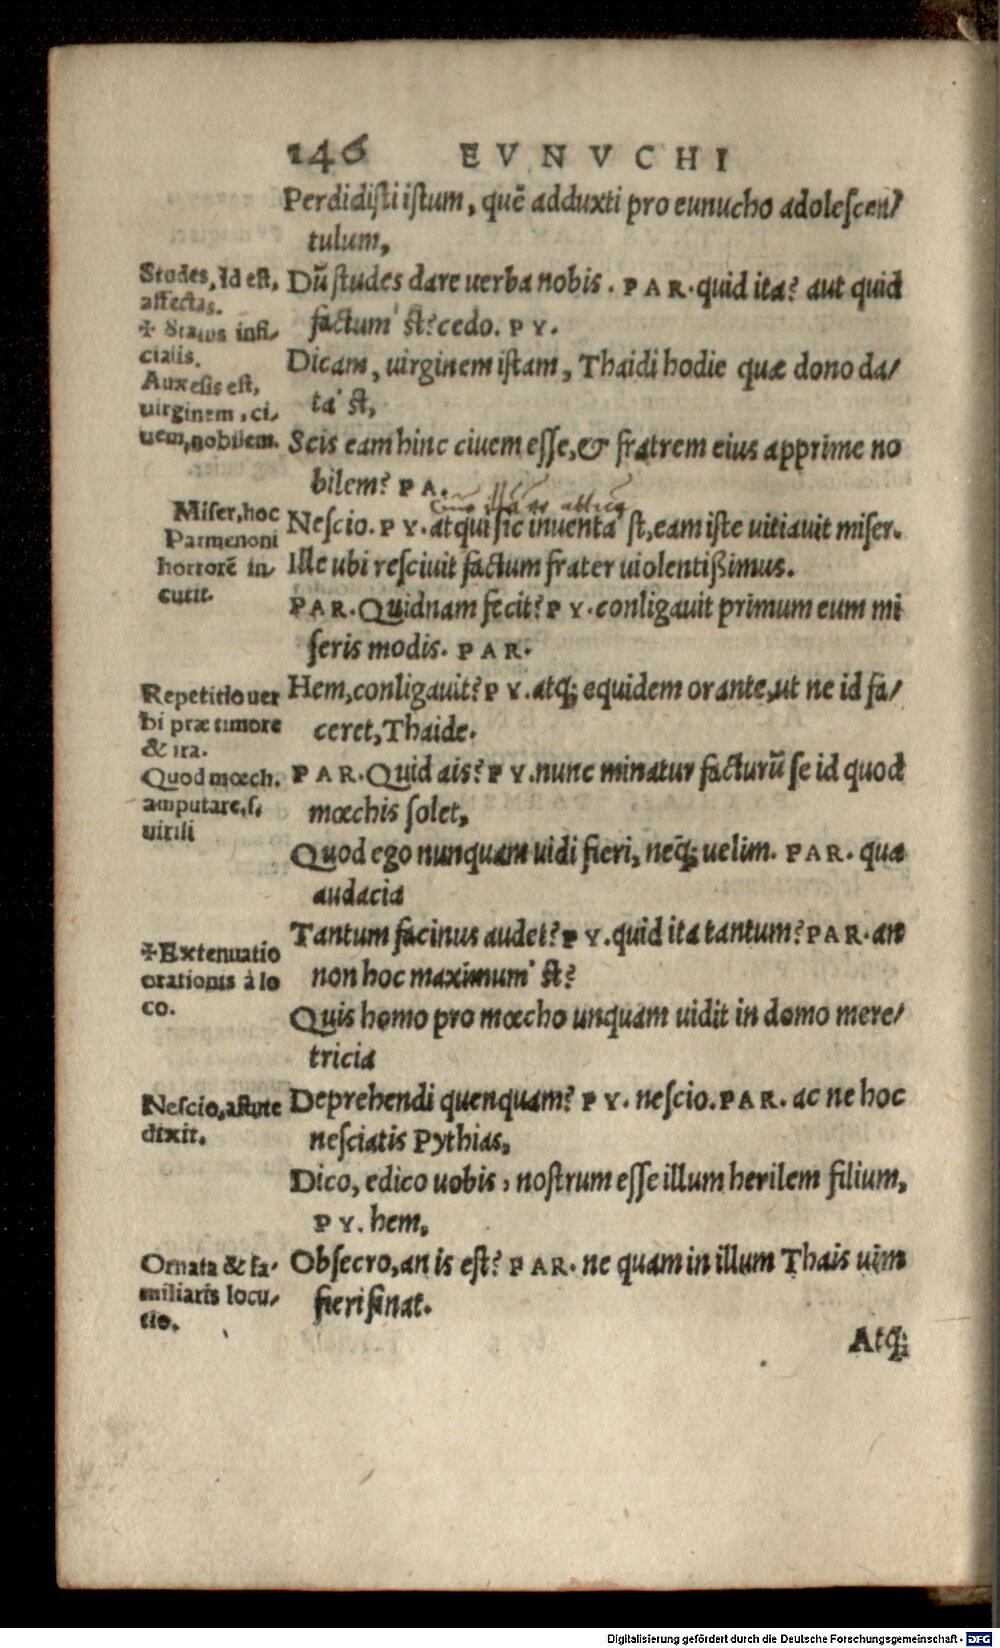 146 EVNVCHI
Perdidisti istum, quē adduxti pro eunucho adolescen/
tulum,
Studes, Id est,
affectas.
Dū studes dare uerba nobis. PAR. quid ita? aut quid
factum' st? cedo. PY.
✠ Status infi-
cialis.
Dicam, uirginem istam, Thaidi hodie quæ dono da/
ta' st,
Auxesis est,
uirginem, ci-
uem, nobilem.
Scis eam hinc ciuem esse, & fratrem eius apprime no
bilem? PA.
Miser, hoc
Parmenoni
horrorē in-
cutit.
Nescio. PY. atqui sic inuenta' st, eam iste uitiauit miser.
Ille ubi resciuit factum frater uiolentißimus.
PAR. Quidnam fecit? PY. conligauit primum eum mi
seris modis. PAR.
Repetitio uer
bi præ timore
& ira.
Hem, conligauit? PY. atq; equidem orante, ut ne id fa/
ceret, Thaide.
Quod mœch.
amputare, s.
uirili
PAR. Quid ais? PY. nunc minatur facturū se id quod
mœchis solet,
Quod ego nunquam uidi fieri, neq; uelim. PAR. qua
audacia
✠Extenuatio
orationis à lo
co.
Tantum facinus audet? PY. quid ita tantum? PAR. an
non hoc maximum' st?
Quis homo pro mœcho unquam uidit in domo mere/
tricia
Nescio, astute
dixit.
Deprehendi quenquam? PY. nescio. PAR. ac ne hoc
nesciatis Pythias,
Dico, edico uobis, nostrum esse illum herilem filium,
PY. hem,
Ornata & fa-
miliaris locu-
tio.
Obsecro, an is est? PAR. ne quam in illum Thais uim
fieri sinat.
Atq;
Digitalisierung gefördert durch die Deutsche Forschungsgemeinschaft - DFG